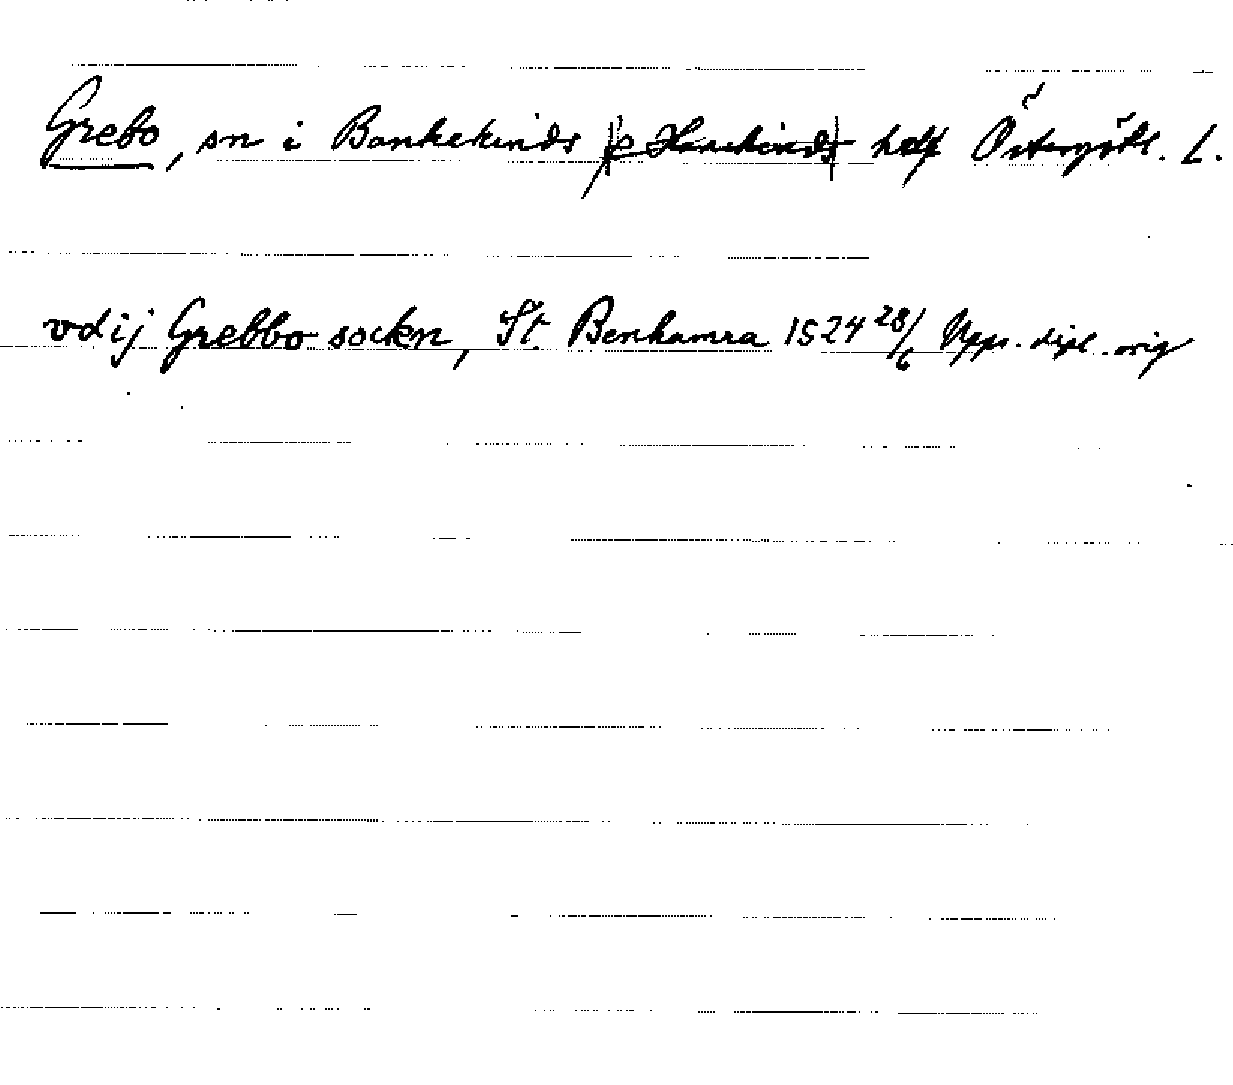 Grebo, sn i Bankekinds o Hanekinds hd Östergötl. L.
vdij Grebbo sockn, St. Benhamra 1524 28/6 Upps. dipl. orig